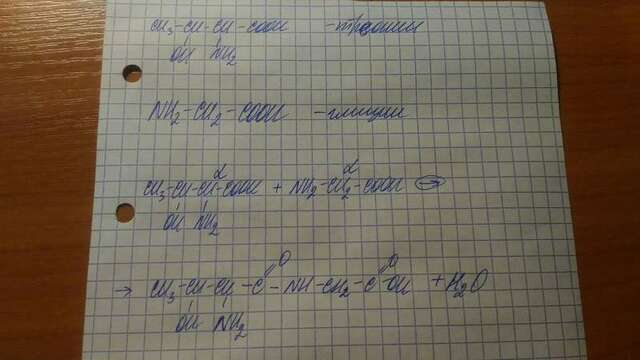 CH₃-CH-CH-COOH -треонин
OH NH₂
NH₂-CH₂-COOH -глицин
α α
CH₃-CH-CH-COOH + NH₂-CH₂-COOH →
OH NH₂
O O
→ CH₃-CH-CH-C-NH-CH₂-C-OH + H₂O
OH NH₂